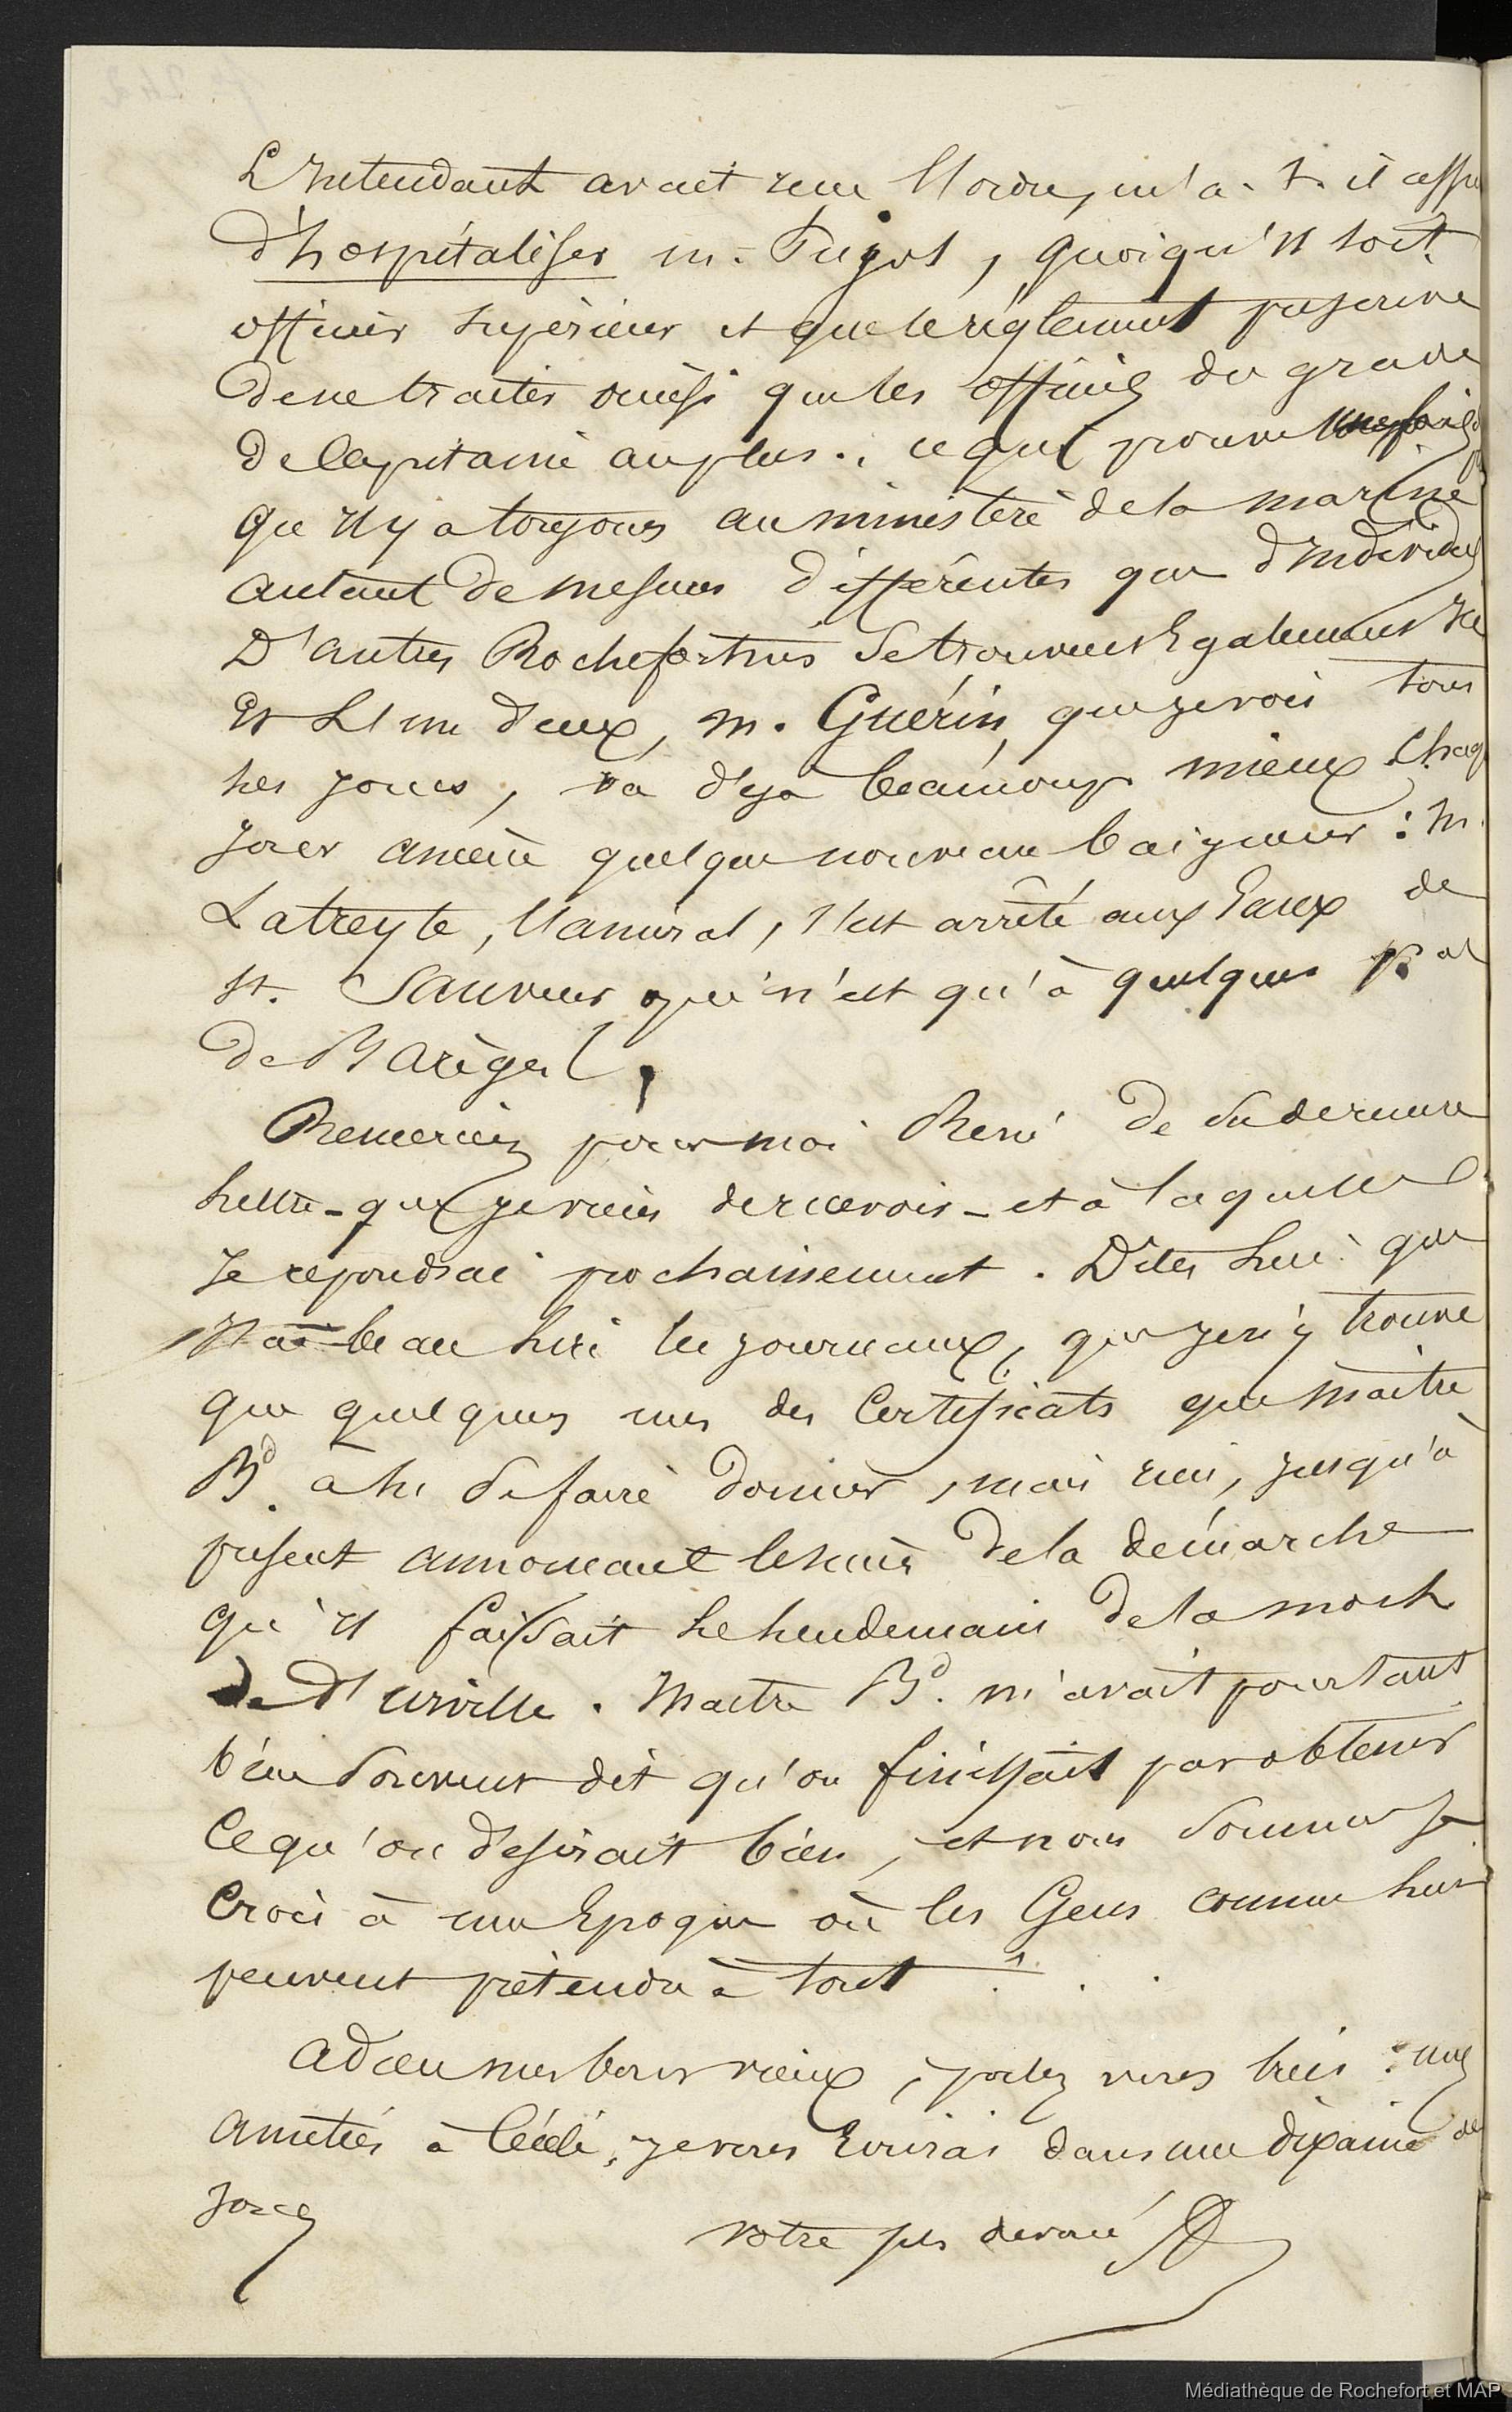 L'Intendant avait reçu l'ordre, m'a-t-il assu
d'hospitaliser m. Pujos, quoiqu'il soit
officier supérieur et que le réglement prescrive
de ne traiter ainsi que les officiers du grade
de Capitaine au plus. ce qui prouve une fois de
qu'il y a toujours au ministère de la marine
autant de mesures différentes que d'individus
D'autres Rochefortais se trouvent Egalement Ici
Et L'un d'eux, m. Guérin, que je vois tous
les jours, va déja beaucoup mieux. Chaq
jour amène quelque nouveau baigneur: m.
Latreyte, l'amiral, s'est arrêté aux Eaux de
St. Sauveur qui n'est qu'à quelques
de Barèges.
Remerciez pour moi René de sa dernière
lettre - que je viens de recevoir - et à laquelle
je répondrai prochainement. Dites lui que
j'ai beau lire les journaux, que je n'y trouve
que quelques uns des Certificats que maître
Bd. a su se faire donner, mais rien, jusqu'à
présent annonçant le succès de la démarche
qu'il faisait le lendemain de la mort
de d'urville. Maître Bd. m'avait pourtant
bien souvent dit qu'on finissait par obtenir
ce qu'on désirait bien, et nous sommes je
crois à une Epoque où les Gens comme lui
peuvent prétendre à tout . . .
adieu mes bons vieux, portez vous bien: mes
amitiés à Cécile, je vous Ecrirai dans une dixaine de
jours
votre fils devoué
Médiathèque de Rochefort et MAP